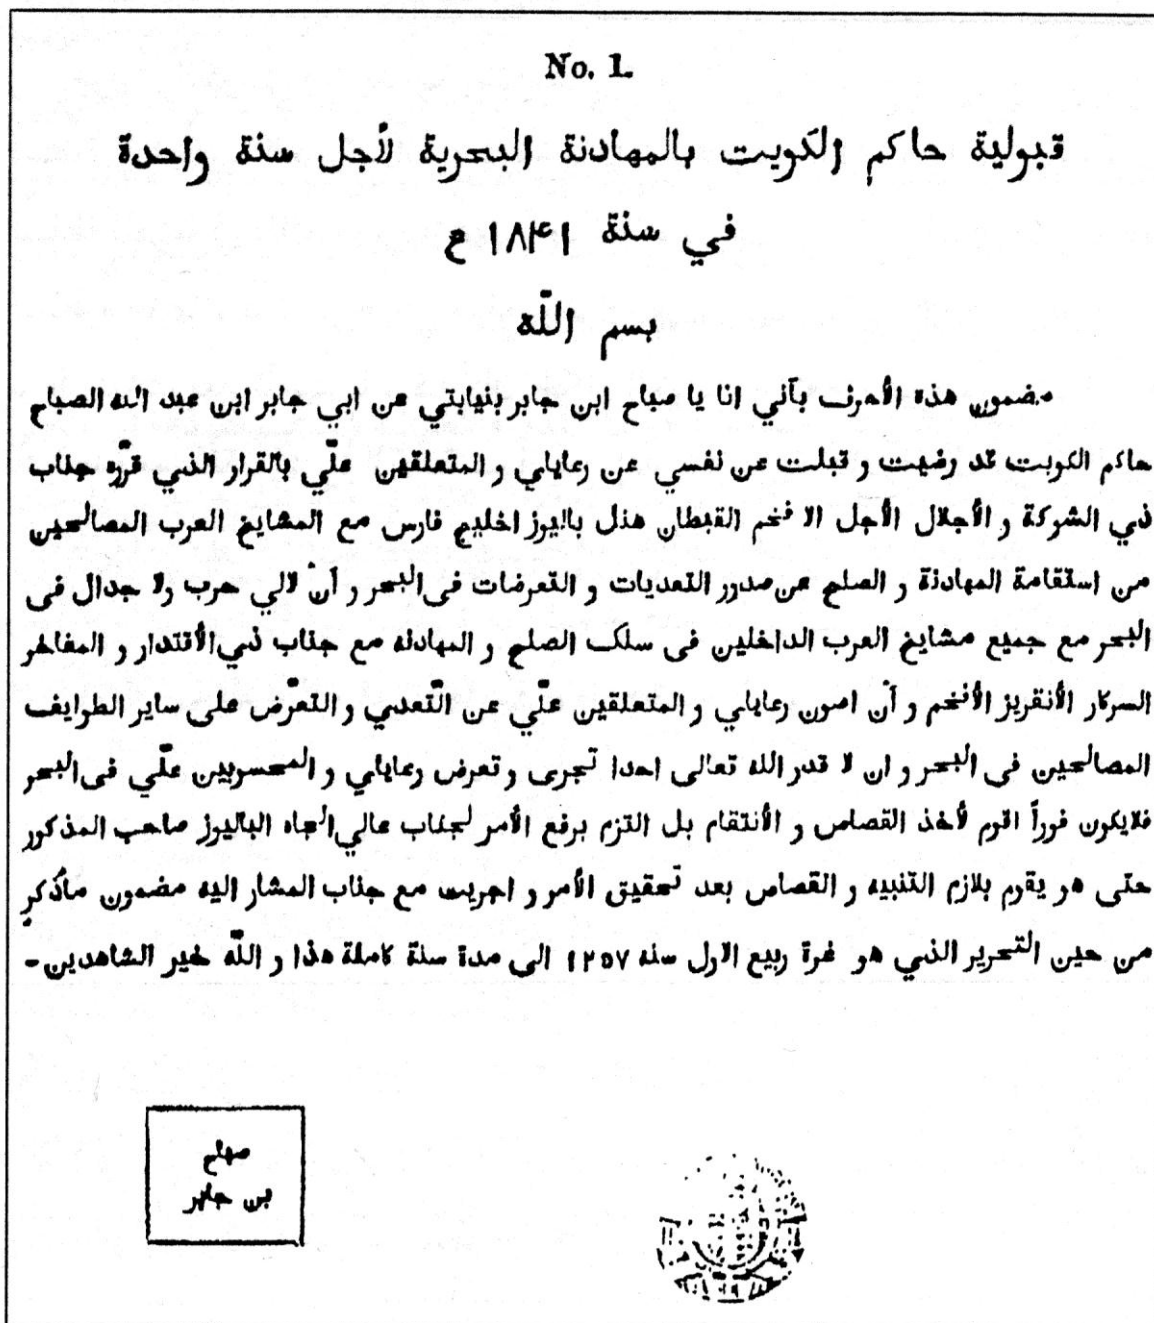 No. 1.
قبولية حاكم الكويت بالمهادنة البحرية لأجل سنة واحدة
في سنة ۱۸۴۱ ع
بسم اللّه
مضمون هذه الأحرف بأني انا يا صباح ابن جابر بنيابتي عن ابي جابر ابن عبد الله الصباح
حاكم الكويت قد رضيت و قبلت عن نفسي عن رعاياي و المتعلقين علّي بالقرار الذي قرّره جناب
ذي الشركة و الأجلال الأجل الا فخم القبطان هنل باليوز اخليج فارس مع المشايخ العرب المصالحين
من استقامة المهادنة و الصلح عن صدور التعديات و التعرضات فى البحر و أن لالي حرب ولا جدال فى
البحر مع جميع مشايخ العرب الداخلين فى سلک الصلح و المهادنه مع جناب ذي الأقتدار و المفاخر
السركار الأنقريز الأفخم و أن اصون رعاياي و المتعلقين علّي عن التّعدي و التعرّض على ساير الطوايف
المصالحين فى البحر و ان لا قدر الله تعالى احدا تجرى و تعرض رعاياي و المحسوبين علّي فى البحر
فلايكون فوراً اقوم لأخذ القصاص و الأنتقام بل التزم برفع الأمر لجناب عالي الجاه الباليوز صاحب المذكور
حتى هو يقوم بلازم التنبيه و القصاص بعد تحقيق الأمر و اجريت مع جناب المشار اليه مضمون ماذكر
من حين التحرير الذي هو غرة ربيع الاول سنه ۱۲۵۷ الى مدة سنة كاملة هذا و اللّه خير الشاهدين-
صباح
بن جابر